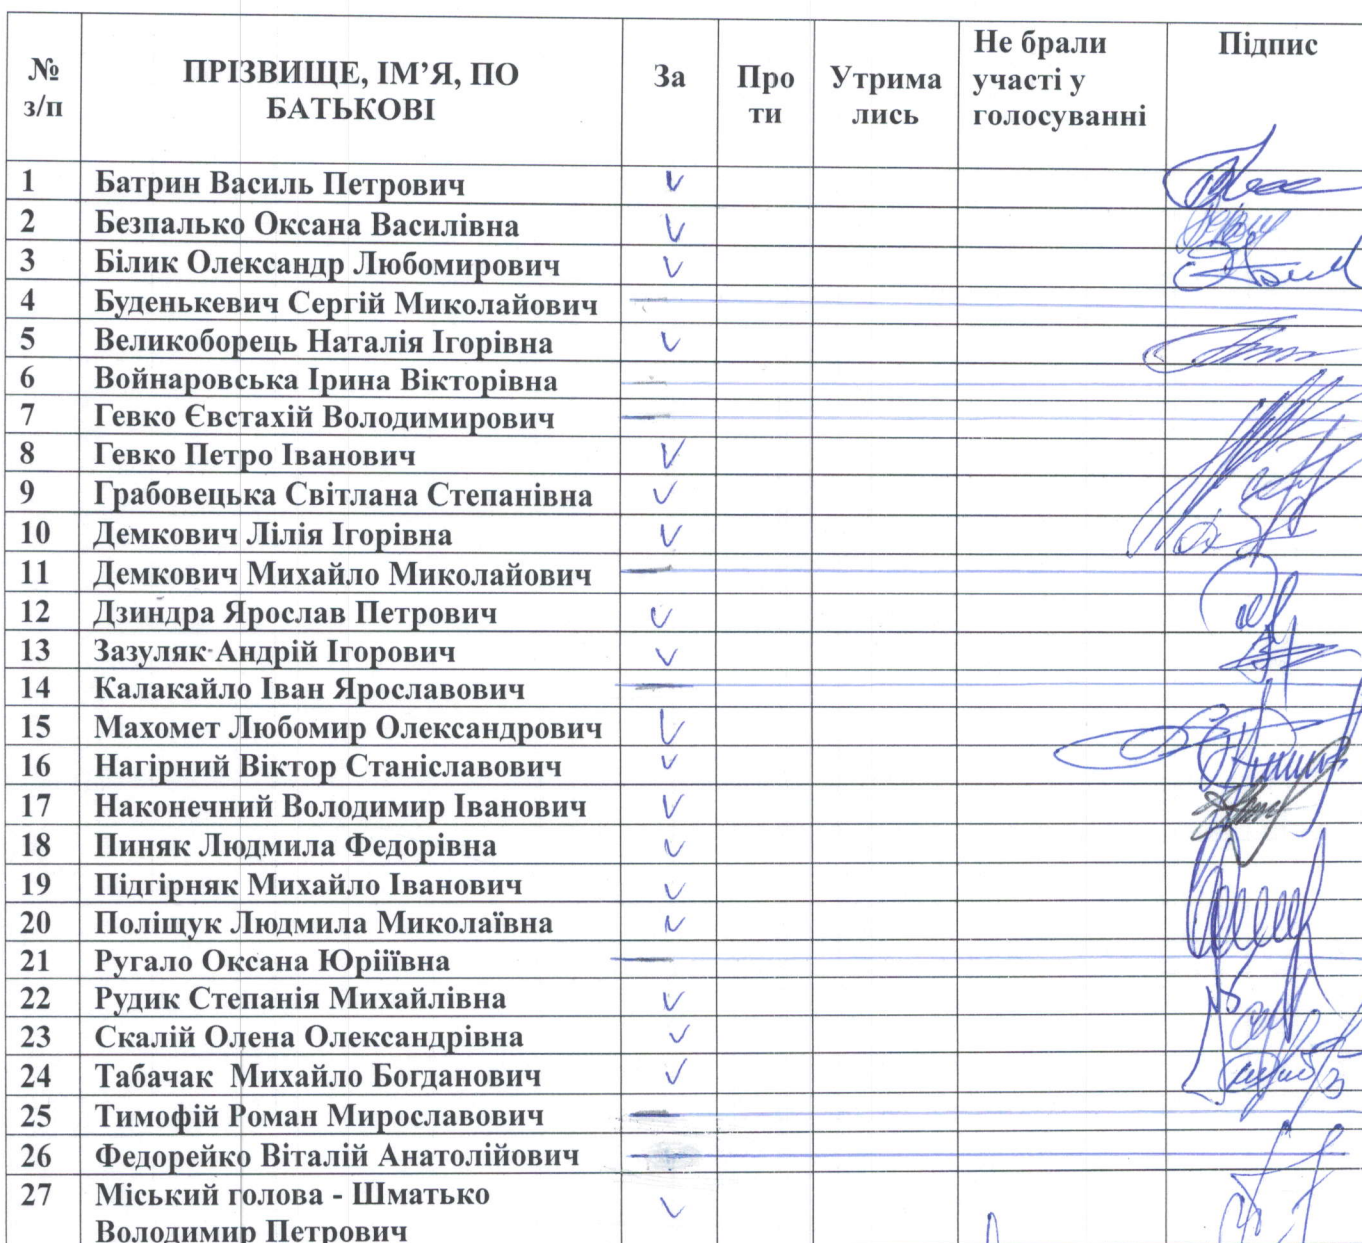 № з/п ПРІЗВИЩЕ, ІМ’Я, ПО БАТЬКОВІ За Про ти Утрима лись Не брали участі у голосуванні Підпис
1 Батрин Василь Петрович V
2 Безпалько Оксана Василівна V
3 Білик Олександр Любомирович V
4 Буденькевич Сергій Миколайович
5 Великоборець Наталія Ігорівна V
6 Войнаровська Ірина Вікторівна
7 Гевко Євстахій Володимирович
8 Гевко Петро Іванович V
9 Грабовецька Світлана Степанівна V
10 Демкович Лілія Ігорівна V
11 Демкович Михайло Миколайович
12 Дзиндра Ярослав Петрович V
13 Зазуляк Андрій Ігорович V
14 Калакайло Іван Ярославович
15 Махомет Любомир Олександрович V
16 Нагірний Віктор Станіславович V
17 Наконечний Володимир Іванович V
18 Пиняк Людмила Федорівна V
19 Підгірняк Михайло Іванович V
20 Поліщук Людмила Миколаївна V
21 Ругало Оксана Юріїївна
22 Рудик Степанія Михайлівна V
23 Скалій Олена Олександрівна V
24 Табачак Михайло Богданович V
25 Тимофій Роман Мирославович
26 Федорейко Віталій Анатолійович
27 Міський голова - Шматько V
Володимир Петрович